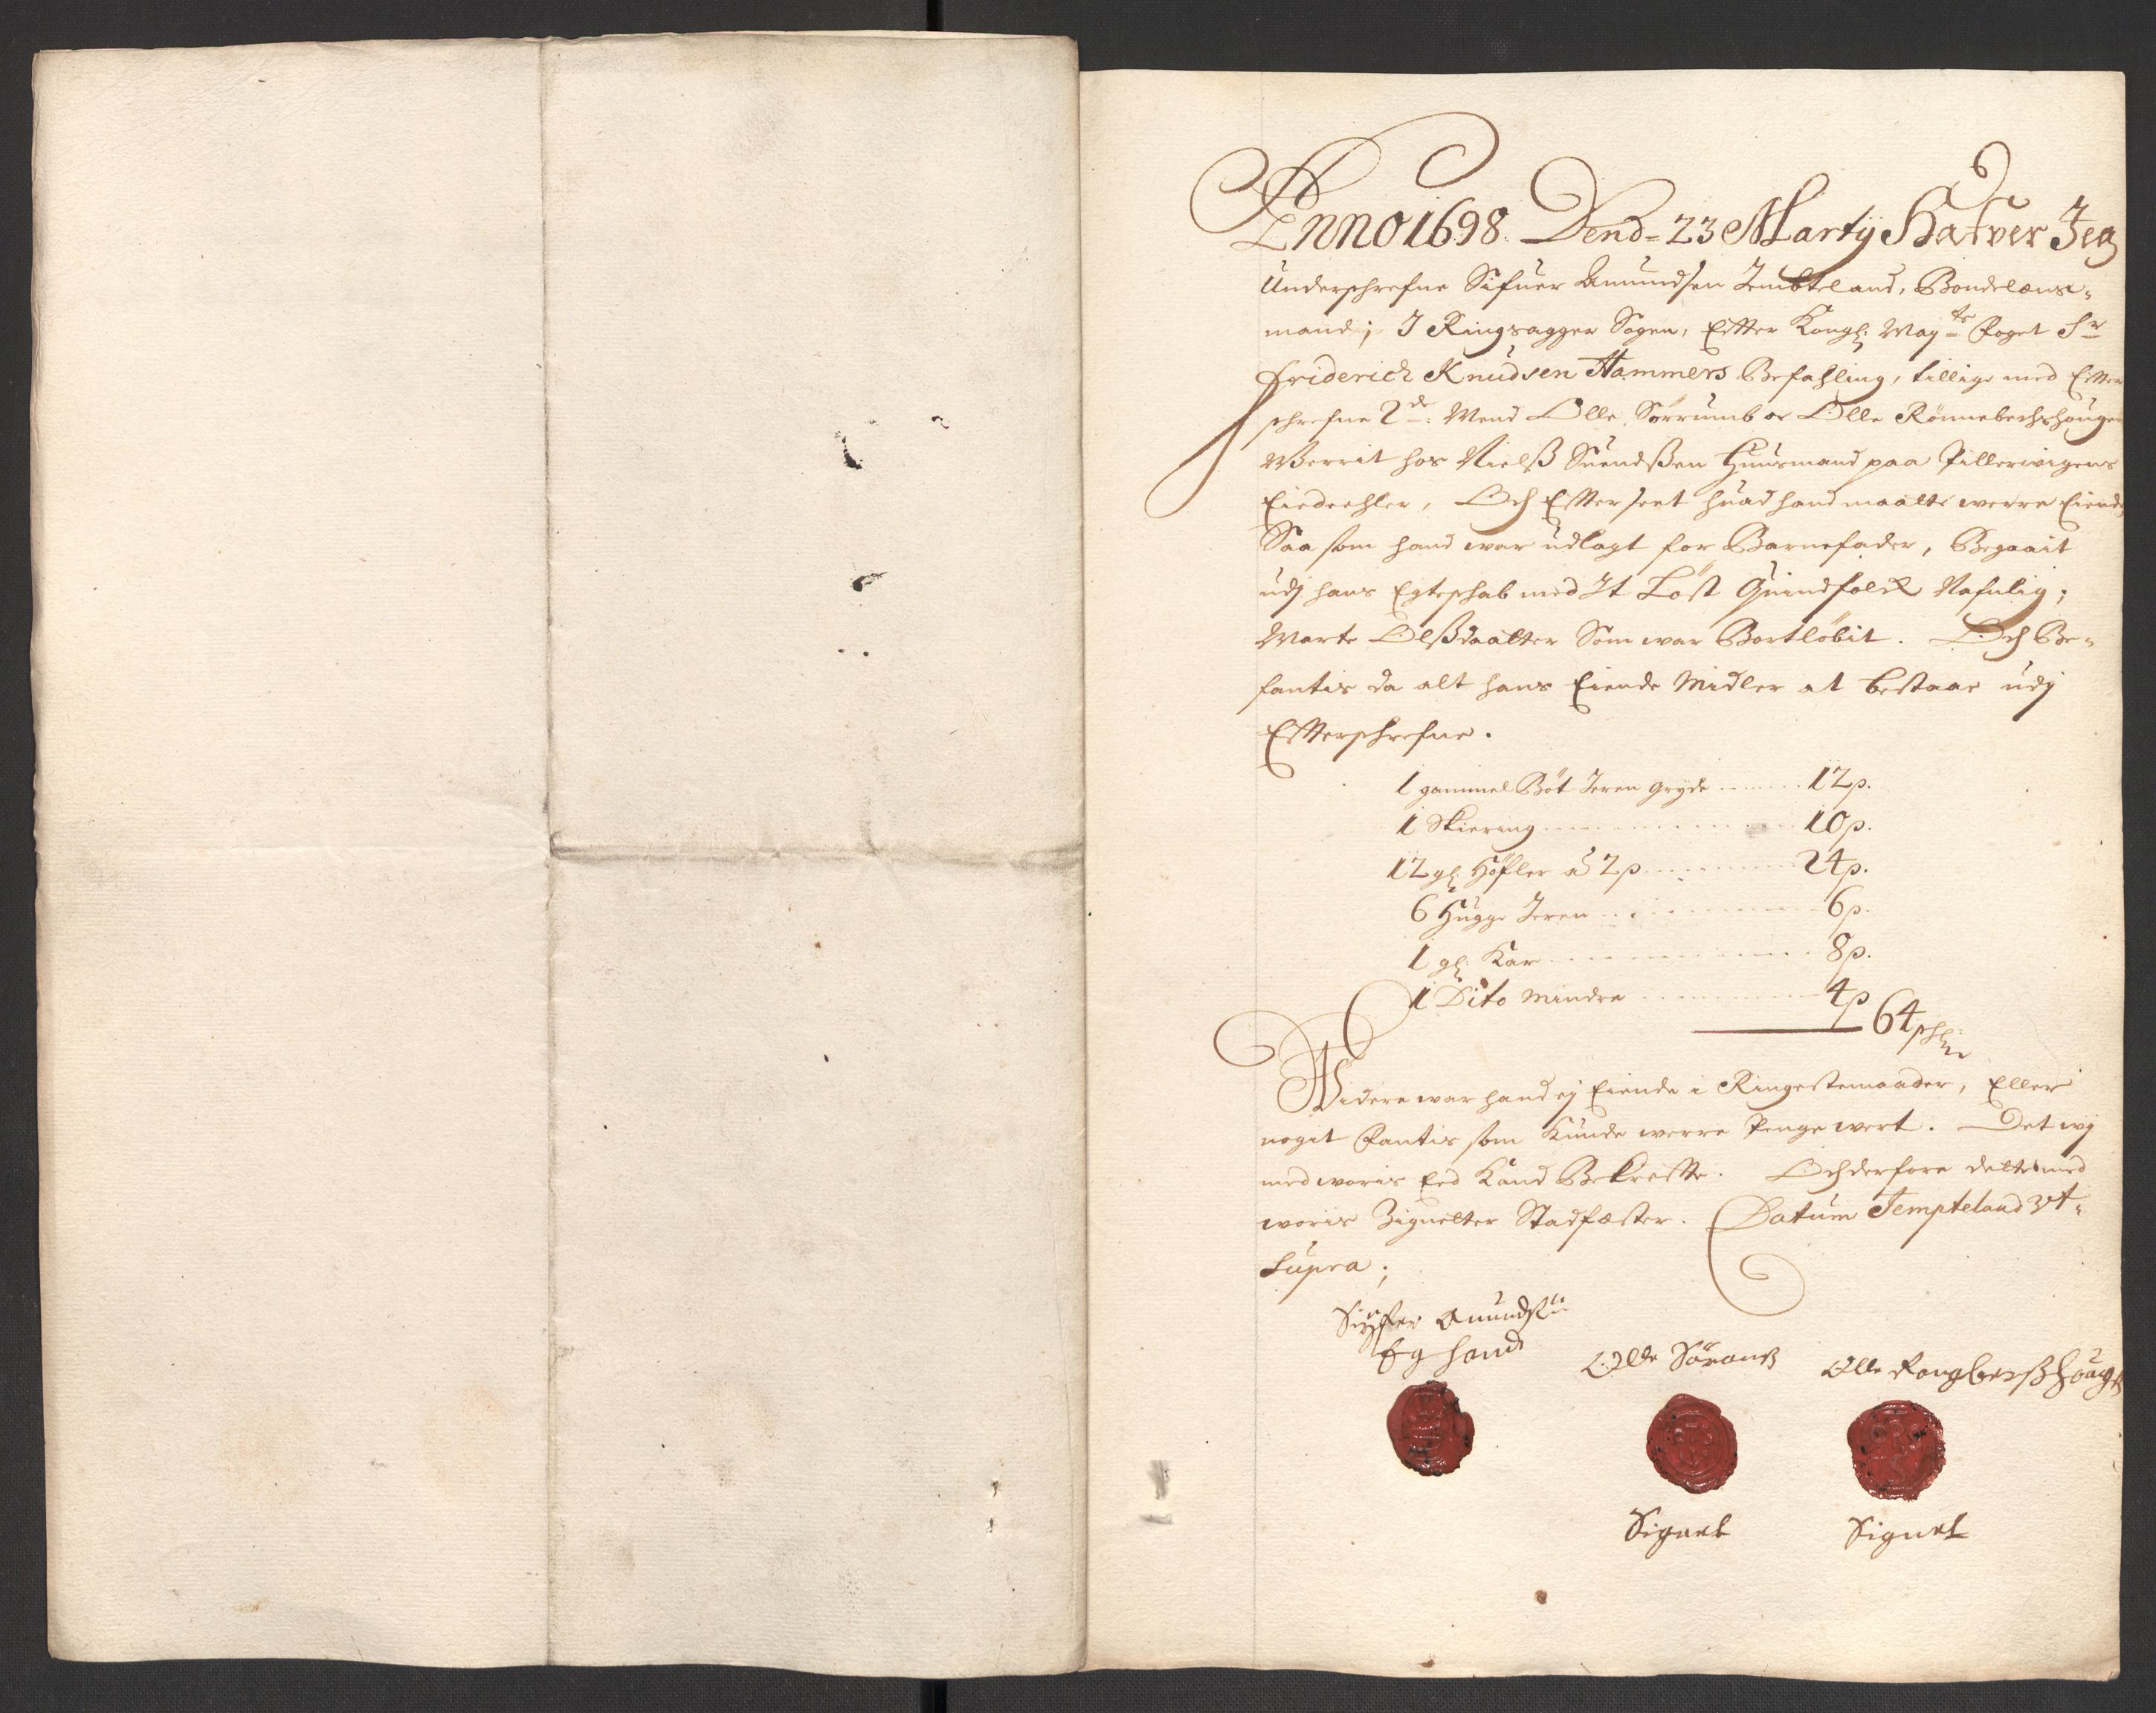 Anno 1698. Dend= 23 Martij Hafver Jeg
Underschrefne Sifuer Amundsen Jembteland, Bondelæns-
mand; I Ringsagger Sogen, Effter Kongl: May:ts Foget Sr
Friderich Knudsen Hammers Befahling, tillige med Effter
schrefne 2de: Mend Olle Sörrumb oc Olle Rönnebechshougen
Werrit hos Nielß Suendßen Huusmand paa Pillerwigens
Eiedeehler, Och Effterseet huad hand maatte werre Eiende
Saa som hand war udlagt for Barnefader, Begaait
udj hans Egteschab med It Löst Quindfolck Nafnlig;
Marte Olßdaatter Som war Bortlöbit. Och Be-
fantis da alt hans Eiende Midler at bestaae udj
Effterschrefne.
1 gammel Böt Jeren gryde ....... 12ß.
1 Skiering ....... 10ß.
12 gl: Höfler à 2ß ....... 24ß.
6 Hugge Jeren ....... 6ß.
1 gl: Kar ....... 8ß.
1 Dito Mindre ....... 4ß
64 schl:
Widere war hand ej Eiende i Ringestemaader, Eller
nogit Fantis som Kunde werre Penge wert. Det wj
med woris Eed Kand Bekreffte. Och derfore dette med
woris Zignetter Stadfæster. Datum Jempteland vt-
supra;
Siffer Amundsen
Eg hand
Olle Sörom
Olle Rongberßhoug
Signet
Signet